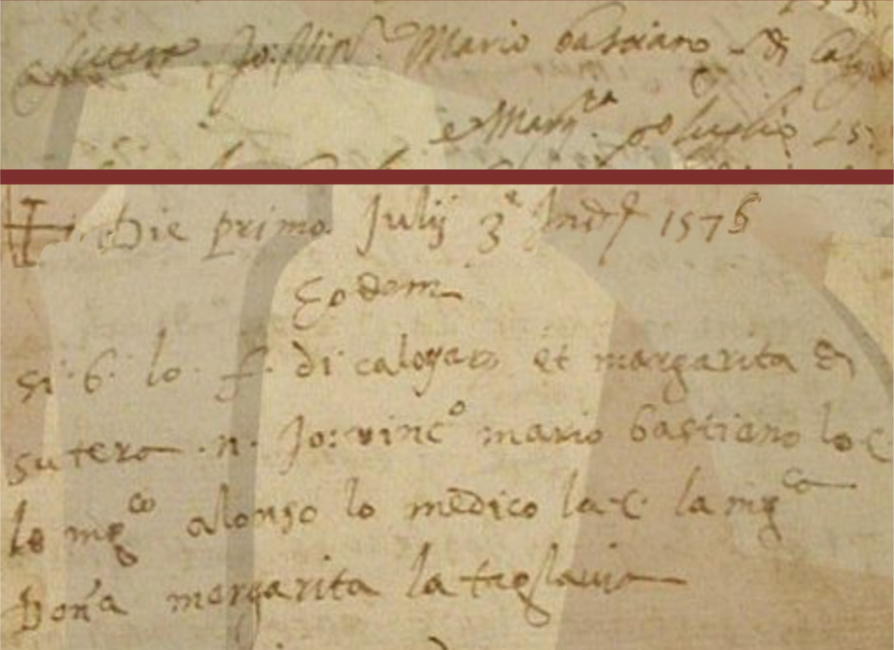 Sutera Jo: Vinc.º Mario bastiano di Calog
e Marg.ta p.º luglio 157
Die primo Julij 3ª Ind. 1575
Eodem
si b. lo f. di caloyaro et margarita di
sutera n. Jo: vincº mario bastiano lo C
lo mgco alonso lo medico la C. la mgca
Dona margarita la tagliavia